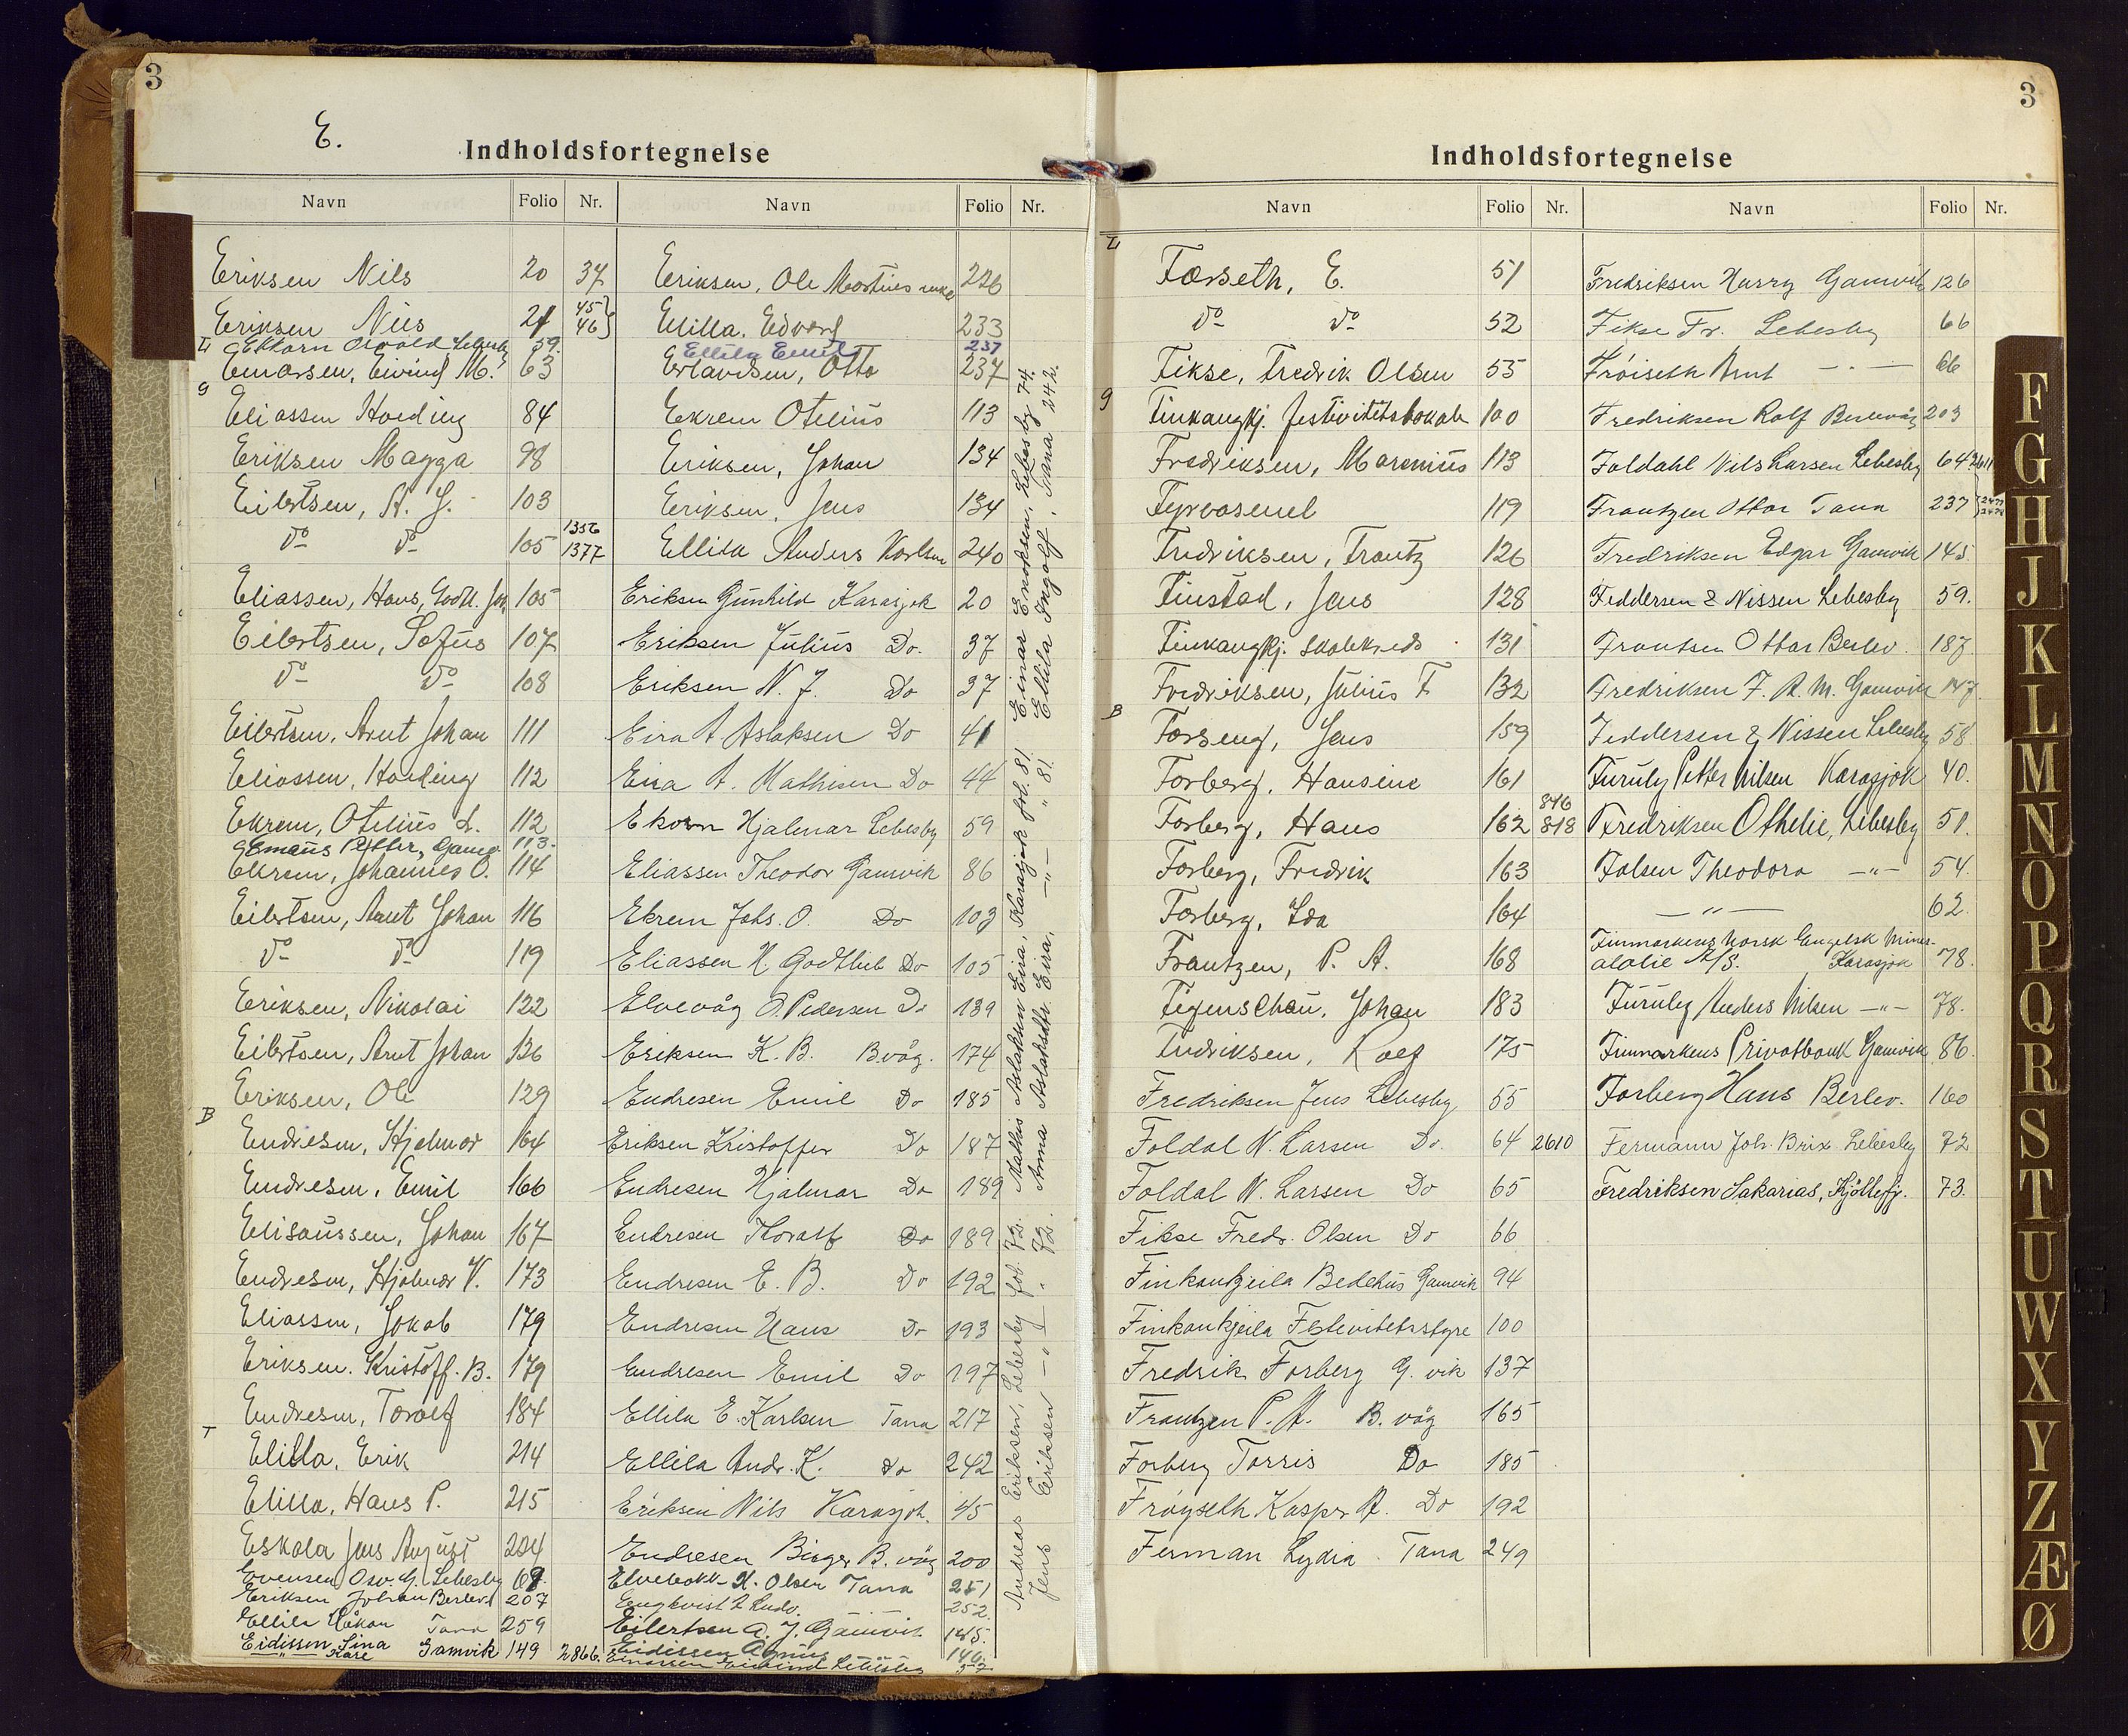 3
E.
Indholdsfortegnelse
Navn Folio Nr. Navn Folio Nr.
Eriksen Nils 20 37
Eriksen Nils 21 45 46
L Ekkorn Osvald Lebesby 59.
Einarsen, Eivind M. 63
G
Eliassen Hæding 84
Eriksen Magga 98
Eilertsen, A. J. 103
do do 105 1356 1377
Eliassen, Hans, Godtl. Joh. 105
Eilertsen, Sofus 107
do do 108
Eilertsen, Arnt Johan 111
Eliassen, Hæding 112
Ekrem, Otelius L. 112
Emaus Petter, Gamv. 113.
Ekrem, Johannes O. 114
Eilertsen, Arnt Johan 116
do do 119
Eriksen, Nikolai 122
Eilertsen, Arnt Johan 126
Eriksen, Ole 129
B
Endresen, Hjalmar 164
Endresen, Emil 166
Elisaussen, Johan 167
Endresen, Hjalmar V. 173
Eliassen, Jakob 179
Eriksen. Kristoff. B. 179
Endresen, Toralf 184
T
Elilla, Erik 214
Elilla, Hans P. 215
Eskola Jens August 224
Evensen Osv. G. Lebesby 69
Eriksen Johan Berlev. 207
Ellila Håkon Tana 259
Eidissen Lina Gamvik 149 2866.
—"— Kåre
Eriksen, Ole Mortines enke 226
Elilla. Edvard 233
Ellila Emil 237
Erlandsen, Otto 237
Ekrem Otelius 113
Eriksen, Johan 134
Eriksen, Jens 134
Ellila Anders Karlsen 240
Eriksen Gunhild Karasjok 20
Eriksen Julius Do. 37
Eriksen N. J. Do 37
Eira A Aslaksen Do 41
Eira A. Mathisen Do 44
Ekorn Hjalmar Lebesby 59
Eliassen Theodor Gamvik 86
Ekrem Johs. O. Do 103
Eliassen H. Godtlieb Do 105
Elvevåg O. Pedersen Do 139
Eriksen K. B. B.våg. 174
Endresen Emil Do 185
Eriksen Kristoffer Do 187
Endresen Hjalmar Do 189
Endresen Thoralf Do 189
Endresen E. B. Do 192
Endresen Hans Do 193
Endresen Emil Do 197
Ellila E. Karlsen Tana 217
Ellila Andr. K. Do 242
Eriksen Nils Karasjok. 45
Endresen Birger B. våg 200
Elvebakk H. Olsen Tana 251
Engkvist Ludv. 252.
Eilertsen A. J. Gamvik 145.
Eidissen Agnus 146.
Einarsen Eivind Lebesby 57
Andreas Eriksen, Lebesby fol. 72. Mathis Aslaksen Eira, Karasjok fol. 81. Einar Enoksen, Lebesby 74.
Jens Eriksen —"— " 72. Anna Aslaksdtr. Eira, —"— " 81. Ellila Ingolf, Tana 242.
3
Indholdsfortegnelse
Navn Folio Nr. Navn Folio Nr.
L
Forseth, E. 51
do do 52
Fikse, Fredrik Olsen 55
G
Finkongkj. festivitetslokale 100
Fredriksen, Marenius 113
Fyrvæsenet 119
Fredriksen, Frantz 126
Finstad, Jens 128
Finkongkj. Skolekreds 131
Fredriksen, Julius F. 132
B
Forseng, Jens 159
Forberg, Hansine 161
Forberg, Hans 162 846 818
Forberg, Fredrik 163
Forberg, Ida 164
Frantzen, P. A. 168
Figenschau, Johan 183
Fredriksen, Rolf 175
Fredriksen Jens Lebesby 55
Foldal N. Larsen Do. 64 2610
Foldal N. Larsen Do 65
Fikse Fredr. Olsen Do 66
Finkonkjeila Bedehus Gamvik 94
Finkonkjeila Festivitetsstyre 100
Fredrik Forberg G. vik 137
Frantzen P. A. B. våg 165
Forberg Torris Do 185
Frøyseth Kaspr A. Do 192
Ferman Lydia Tana 249
Fredriksen Harry Gamvik 126
Fikse Fr. Lebesby 66
Frøiseth Arnt — " — 66
Fredriksen Rolf Berlevåg 203
Foldahl Nils Larsen Lebesby 64 2611
Frantzen Ottar Tana 237
Fredriksen Edgar Gamvik 145
Feddersen & Nissen Lebesby 59.
Frantsen Ottar Berlev. 187
Fredriksen F. A. M. Gamvik 147
Feddersen & Nissen Lebesby 58
Furuly Petter Nilsen Karasjok 40.
Fredriksen Othelie, Lebesby 51.
Folsen Theodora —"— 54.
—"— 62.
Finmarkens Norsk Engelsk Miner-
alolie A/S. Karasjok 78.
Furuly Anders Nilsen —"— 78.
Finmarkens Privatbank Gamvik 86.
Forberg Hans Berlev. 160
Fermann Joh. Brix Lebesby 72
Fredriksen Sakarias, Kjøllefj. 73.
F
G
H
J
K
L
M
N
O
P
Q
R
S
T
U
W
X
Y
Z
Æ
Ø